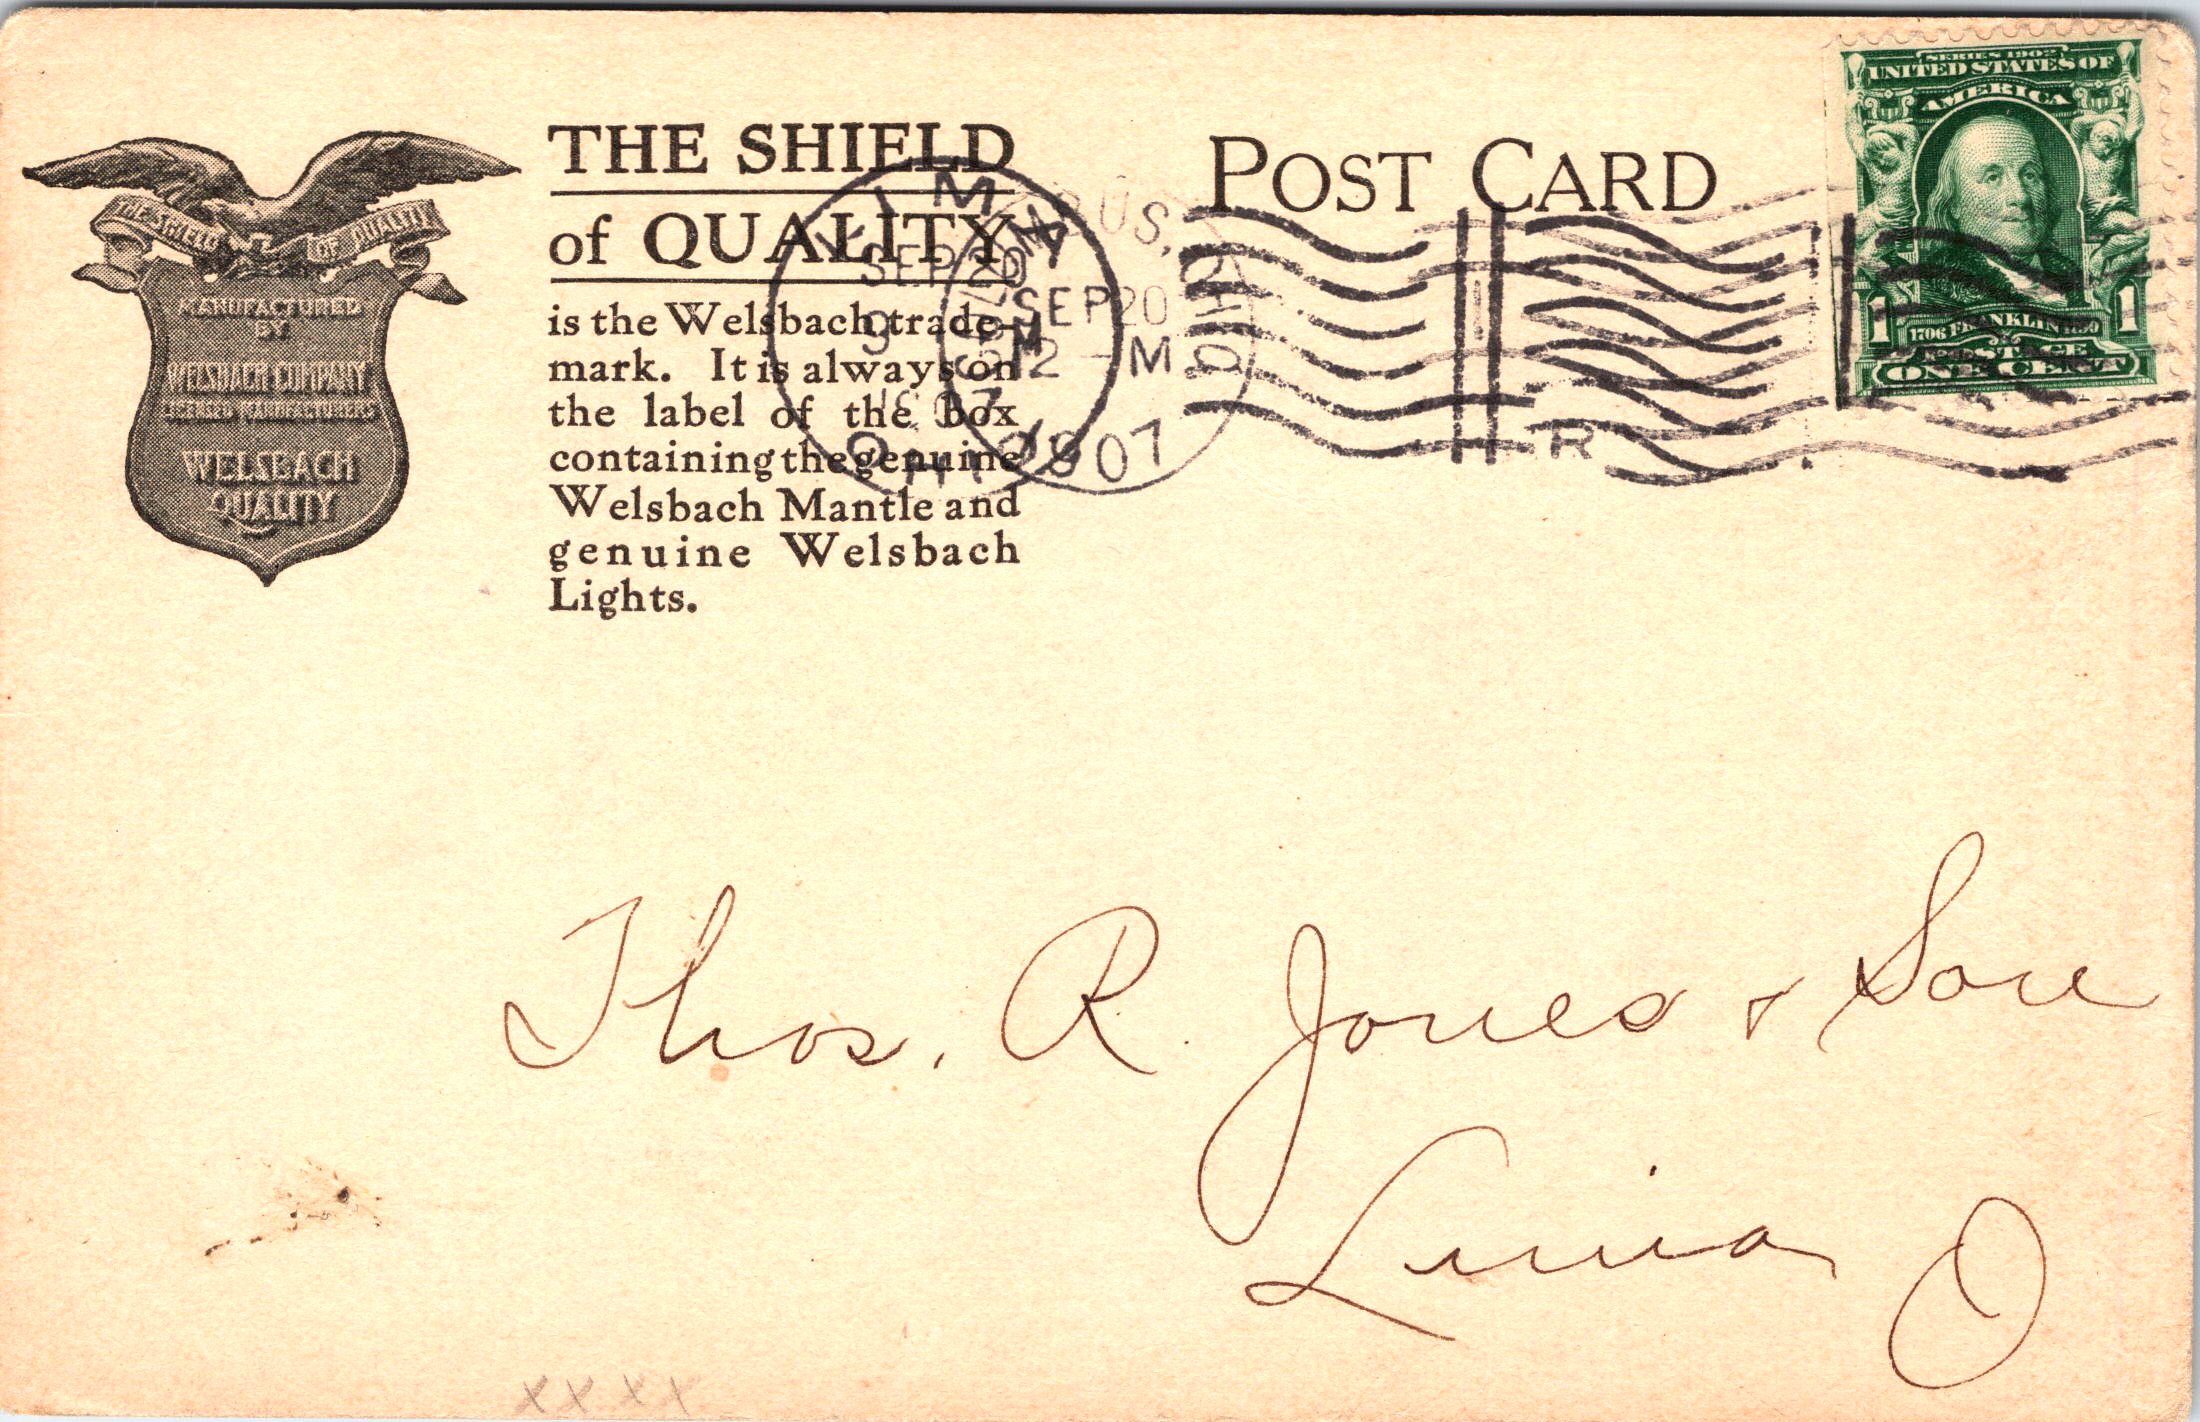 THE SHIELD OF QUALITY
MANUFACTURED
BY
WELSBACH COMPANY
LICENSED MANUFACTURERS
WELSBACH
QUALITY
THE SHIELD
of QUALITY
is the Welsbach trade-
mark. It is always on
the label of the box
containing the genuine
Welsbach Mantle and
genuine Welsbach
Lights.
POST CARD
LIMA
SEP 20
9
M
1907
OHIO
COLUMBUS, OHIO
SEP 20
12-M
1907
R
SERIES 1902
UNITED STATES OF
AMERICA
1706 FRANKLIN 1790
1 1
POSTAGE
ONE CENT
Thos. R. Jones & Son
Lima O
XXXX